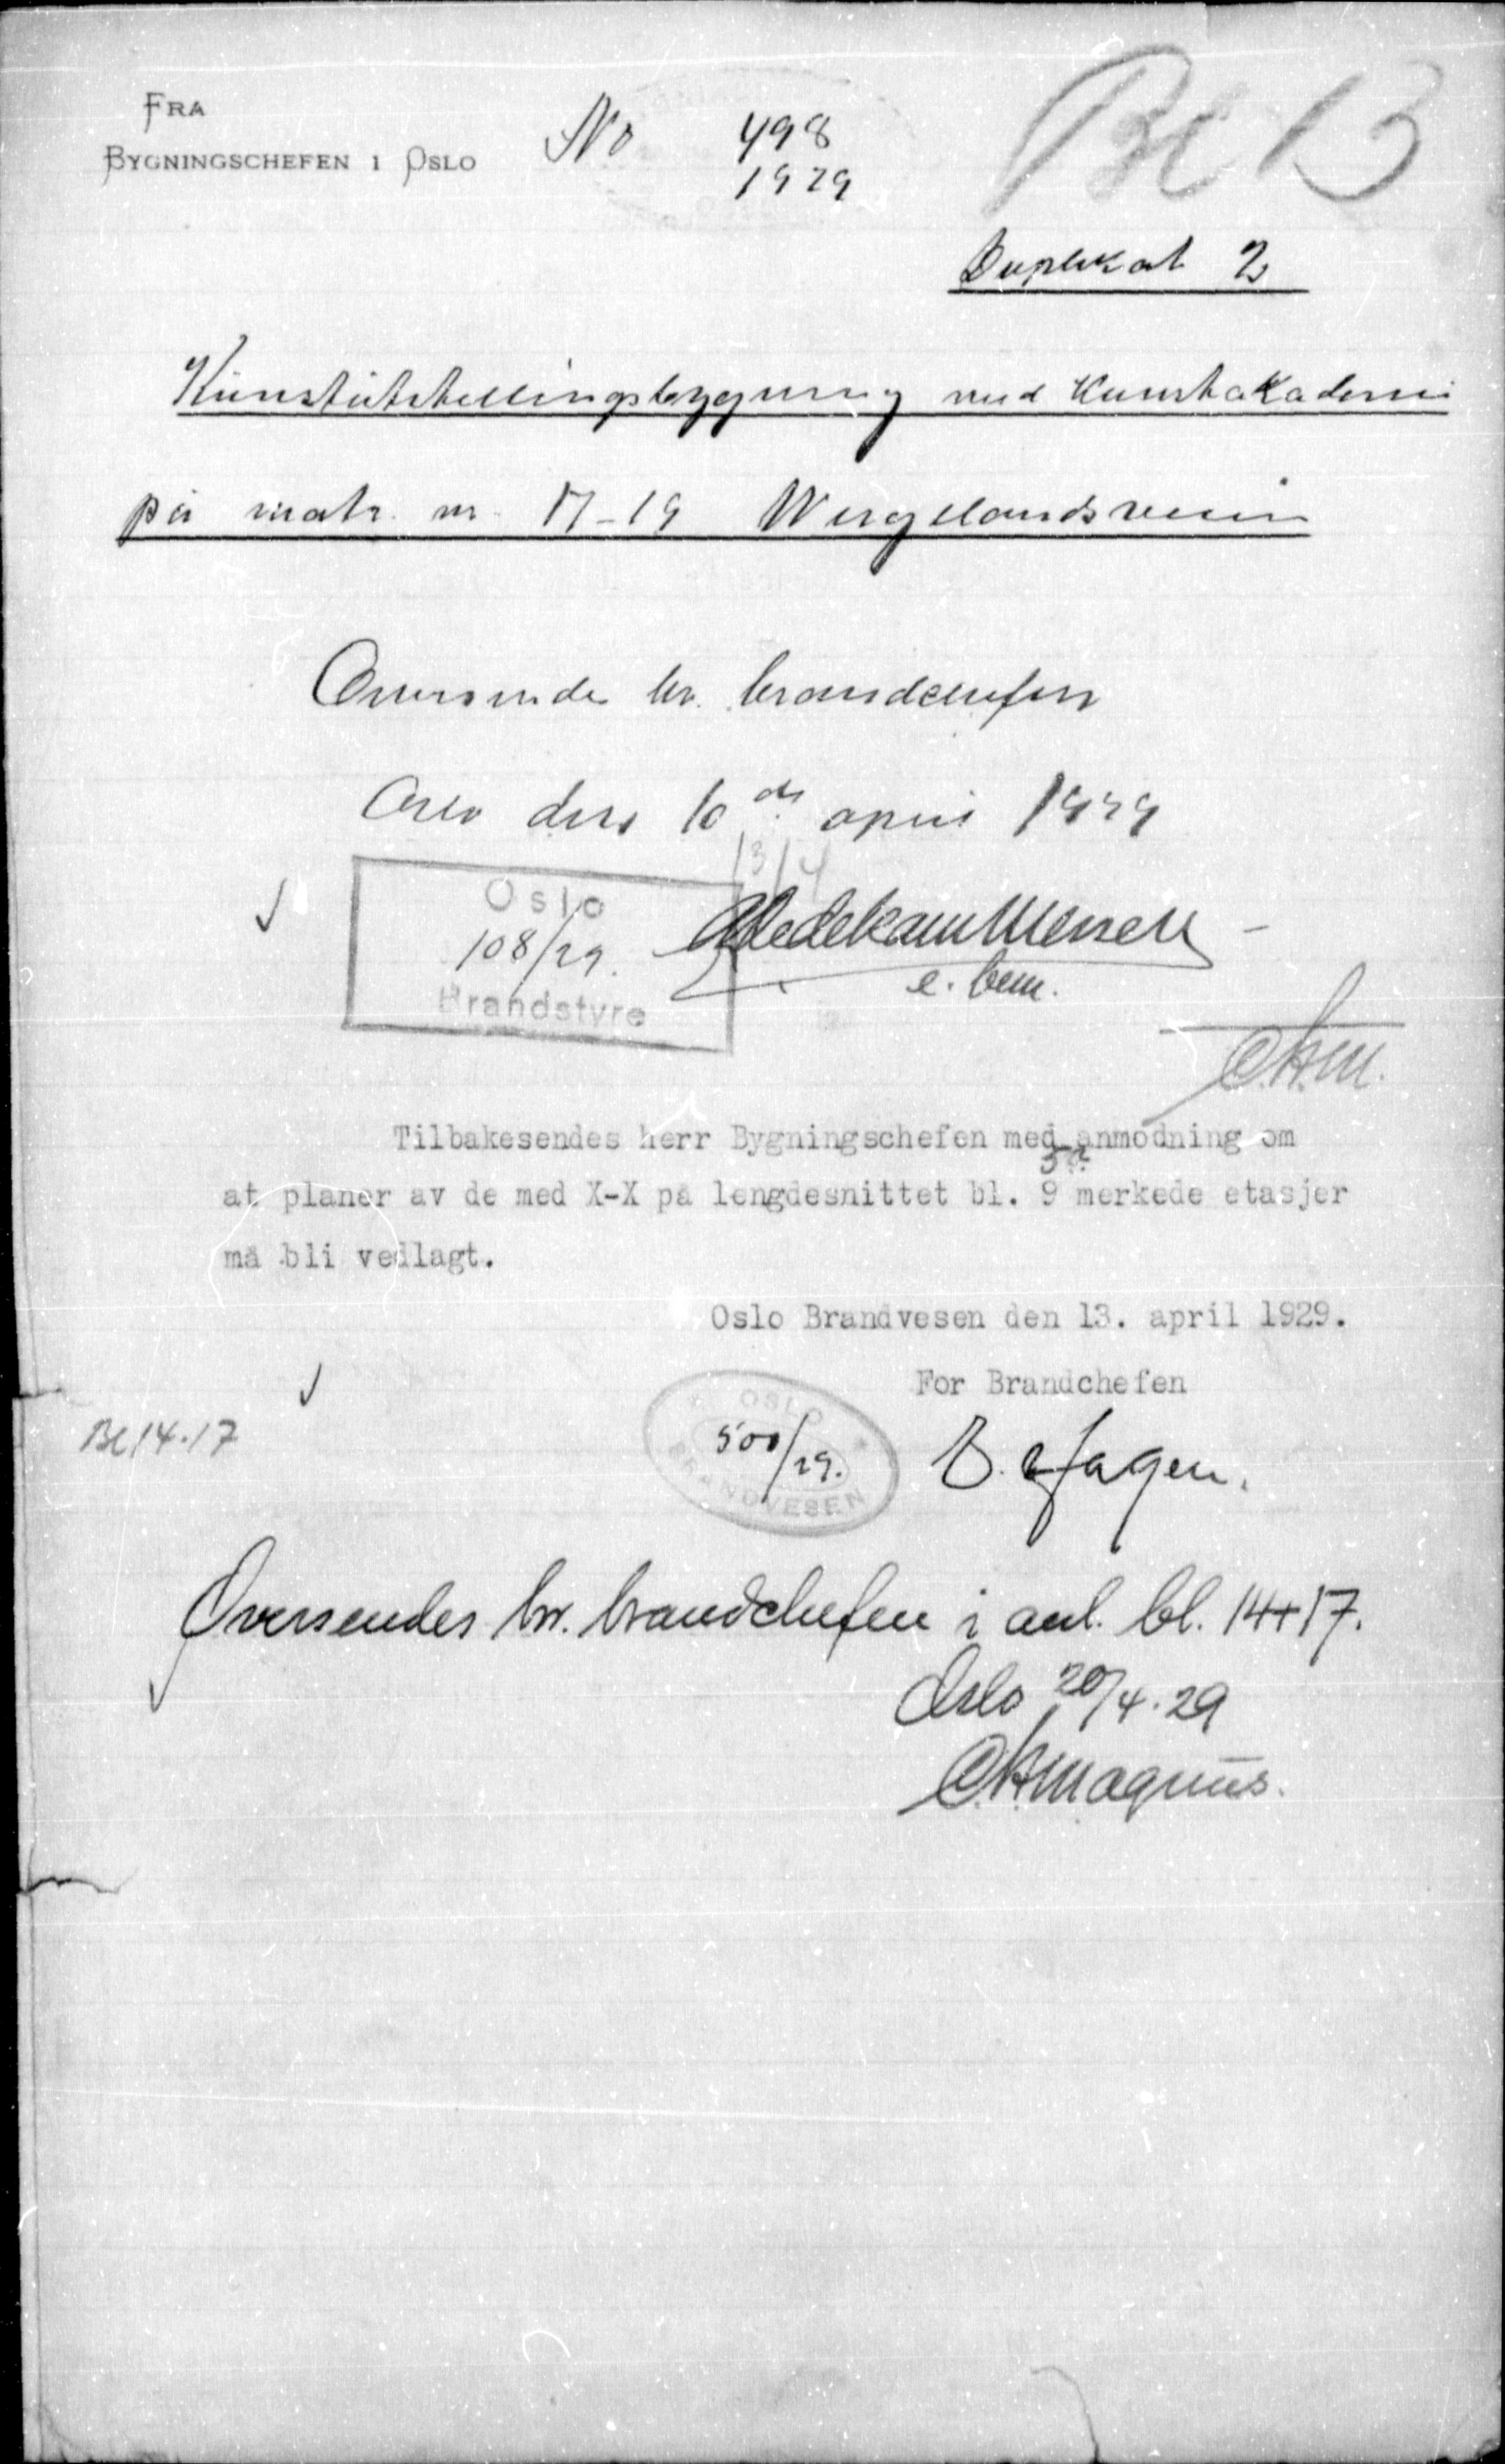 FRA
BYGNINGSCHEFEN I OSLO
No 498
1929
Bl 13
Duplikat 2
Kunstutstillingsbygning med Kunstakademi
på matr. nr. 17-19 Wergelandsveien
Oversendes hr. brandchefen
Oslo den 10de april 1929
13/4
Oslo
108/29.
Brandstyre
e. bem.
C.H.M.
Tilbakesendes herr Bygningschefen med anmodning om
5 &
at planer av de med X-X på lengdesnittet bl. 9 merkede etasjer
må bli vedlagt.
Oslo Brandvesen den 13. april 1929.
For Brandchefen
Bl 14.17
OSLO
500/29.
BRANDVESEN
Oversendes hr. brandchefen i anl. bl. 14+17.
Oslo 20/4.29
C.H.Magnus.